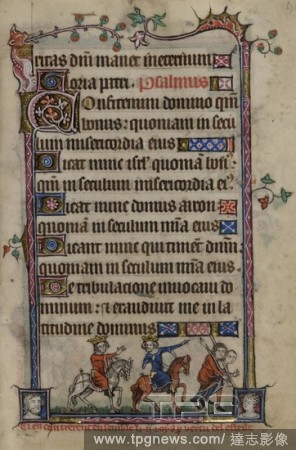 ritas dñi manet in eternum
Gloria patri. Psalmus
Confitemini domino qm̄
bonus: quoniam in secu
lum misericordia eius
Dicat nunc isrl' quoniam bon':
qm̄ in seculum misericordia ei'.
Dicat nunc domus aaron
quoniam in seculum mīa eius
Dicant nunc qui timent dnm̄:
quoniam in seculum mīa eius.
De tribulacione invocavi do
minum: et exaudivit me in la
titudine dominus
www.tpgnews.com / 達志影像